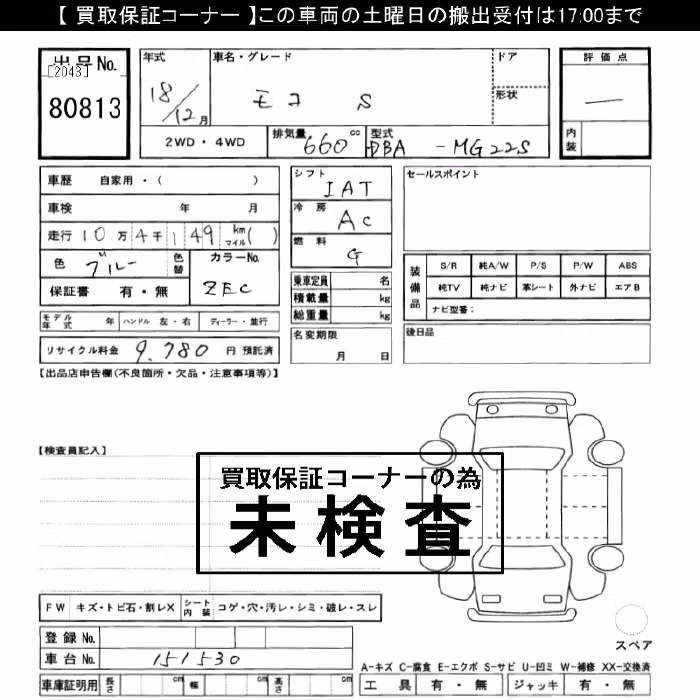 【 買取保証コーナー 】この車両の土曜日の搬出受付は17:00まで
出品No.
[2043]
80813
年式
18/12月
車名・グレード
モコ S
ドア
形状
評価点
—
内装
2WD・4WD
排気量 660cc
型式 DBA-MG22S
車歴 自家用・( )
車検 年 月
走行 10万4千149 km マイル( )
色 ブルー
色替
カラーNo.
ZEC
保証書 有・無
シフト
IAT
冷房
AC
燃料
G
乗車定員 名
積載量 kg
総重量 kg
セールスポイント
装備品
S/R 純A/W P/S P/W ABS
純TV 純ナビ 革シート 外ナビ エアB
ナビ型番:
モデル年式 年 ハンドル 左・右 ディーラー・並行
名変期限
月 日
後日品
リサイクル料金 9,780 円 預託済
【出品店申告欄(不良箇所・欠品・注意事項等)】
【検査員記入】
買取保証コーナーの為
未検査
FW キズ・トビ石・割レX シート内装 コゲ・穴・汚レ・シミ・破レ・スレ
登録No.
車台No. 151530
スペア
A-キズ C-腐食 E-エクボ S-サビ U-凹ミ W-補修 XX-交換済
車庫証明用 長さ cm 幅 cm 高さ cm
工具 有・無 ジャッキ 有・無